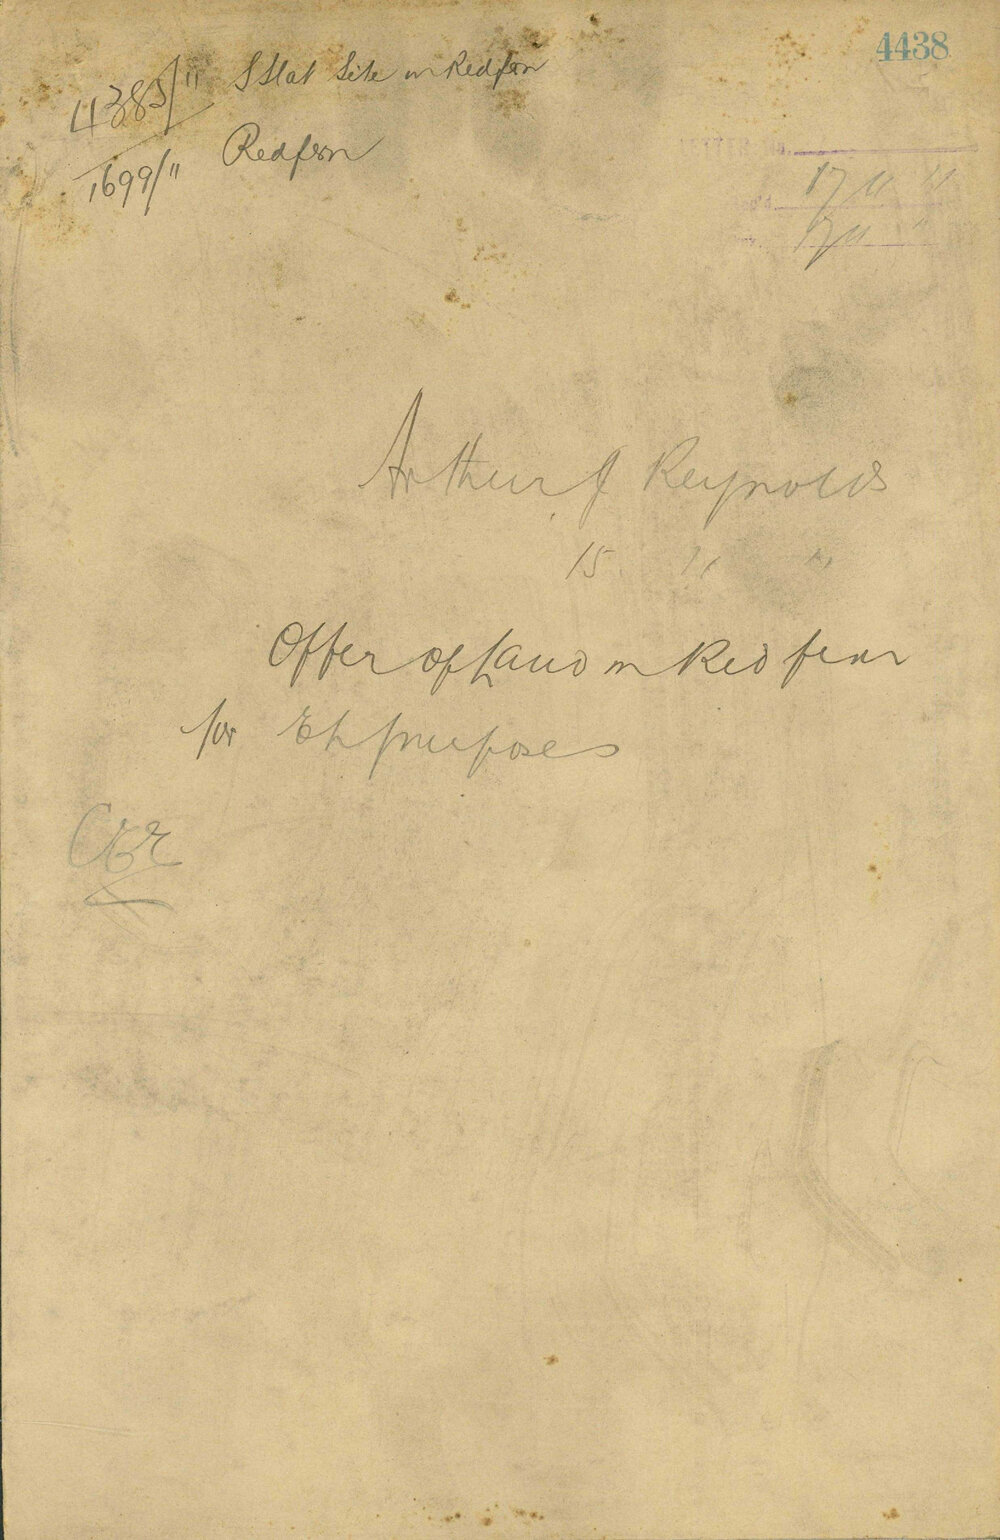 4438
4383/" S Stat Site in Redfern
1699/" Redfern
17 11 "
17 11 "
Arthur J Reynolds
15 " "
Offer of Land in Redfern
for EL purposes